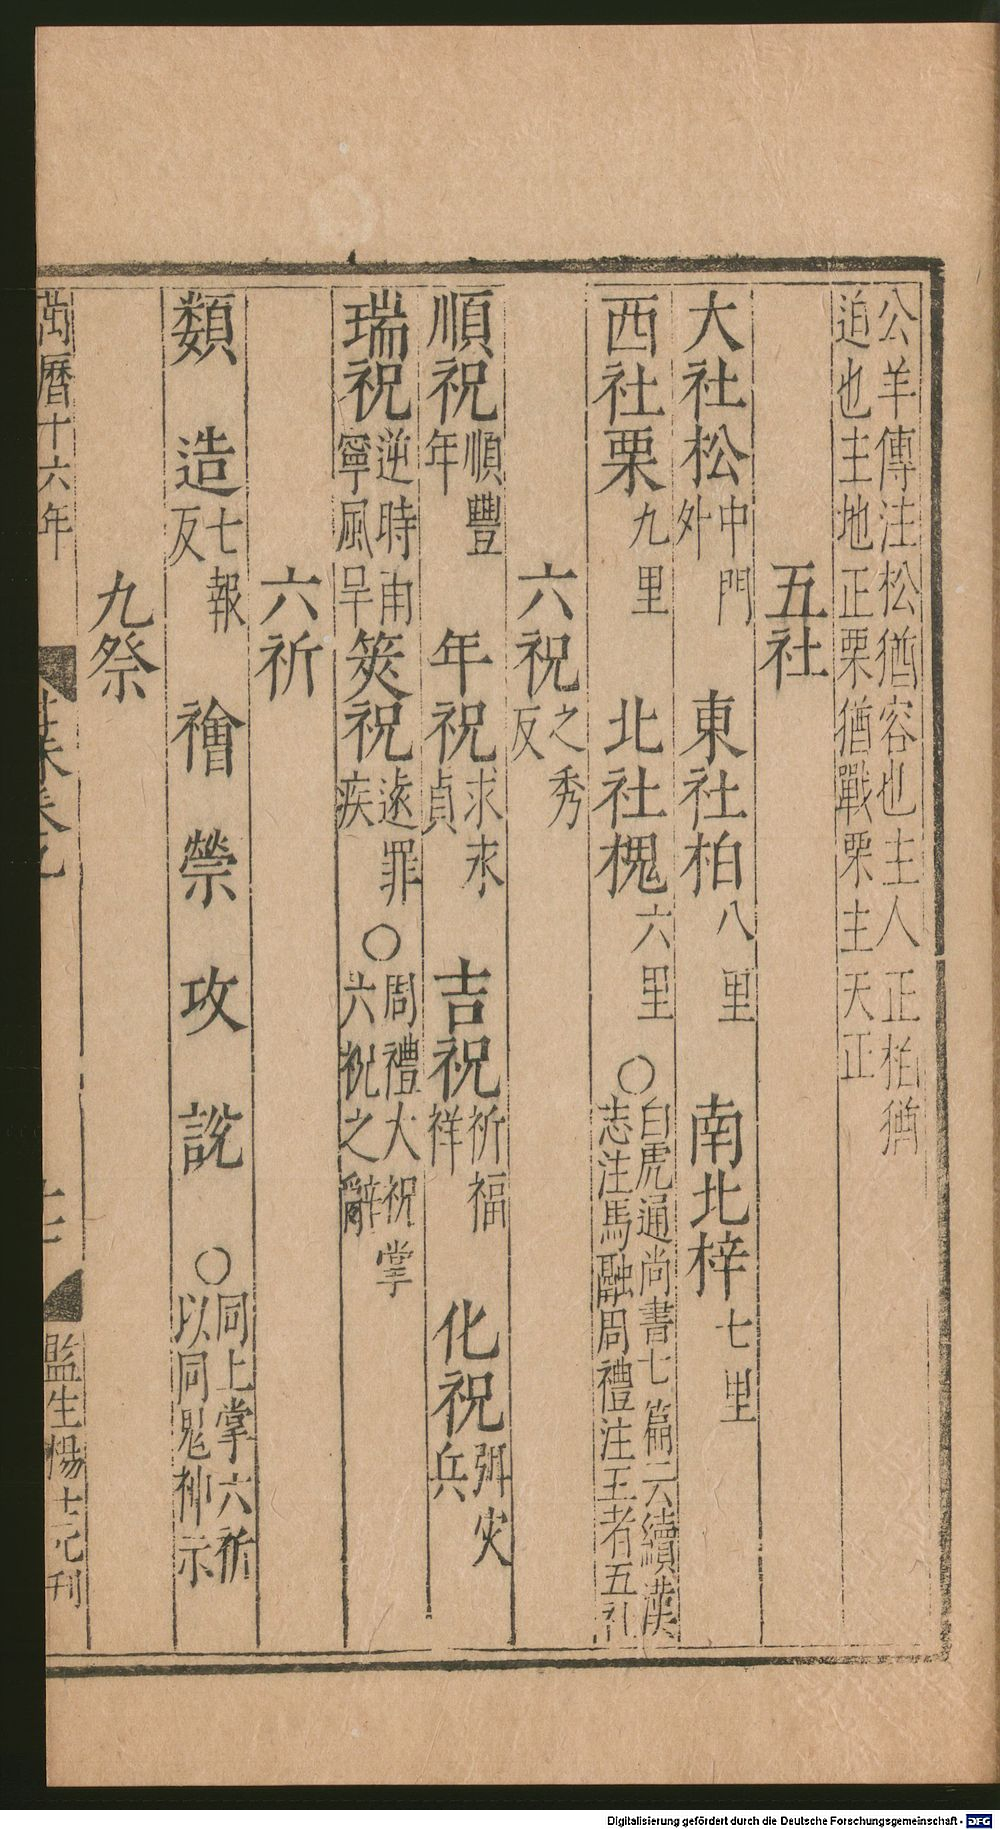 公羊傳注松猶容也主人正柏猶
迫也主地正栗猶戰栗主天正
五社
大社松中門外 東社柏八里 南北梓七里
西社栗九里 北社槐六里 ○白虎通尚書七篇云續漢志注馬融周禮注王者五社
六祝之秀反
順祝順豐年 年祝求永貞 吉祝祈福祥 化祝弭灾兵
瑞祝逆時雨寧風旱 筴祝遠罪疾 ○周禮大祝掌六祝之辭
六祈
類 造七報反 禬 禜 攻 說 ○同上掌六祈以同鬼神示
九祭
萬曆十六年
監生楊士元刊
Digitalisierung gefördert durch die Deutsche Forschungsgemeinschaft - DFG